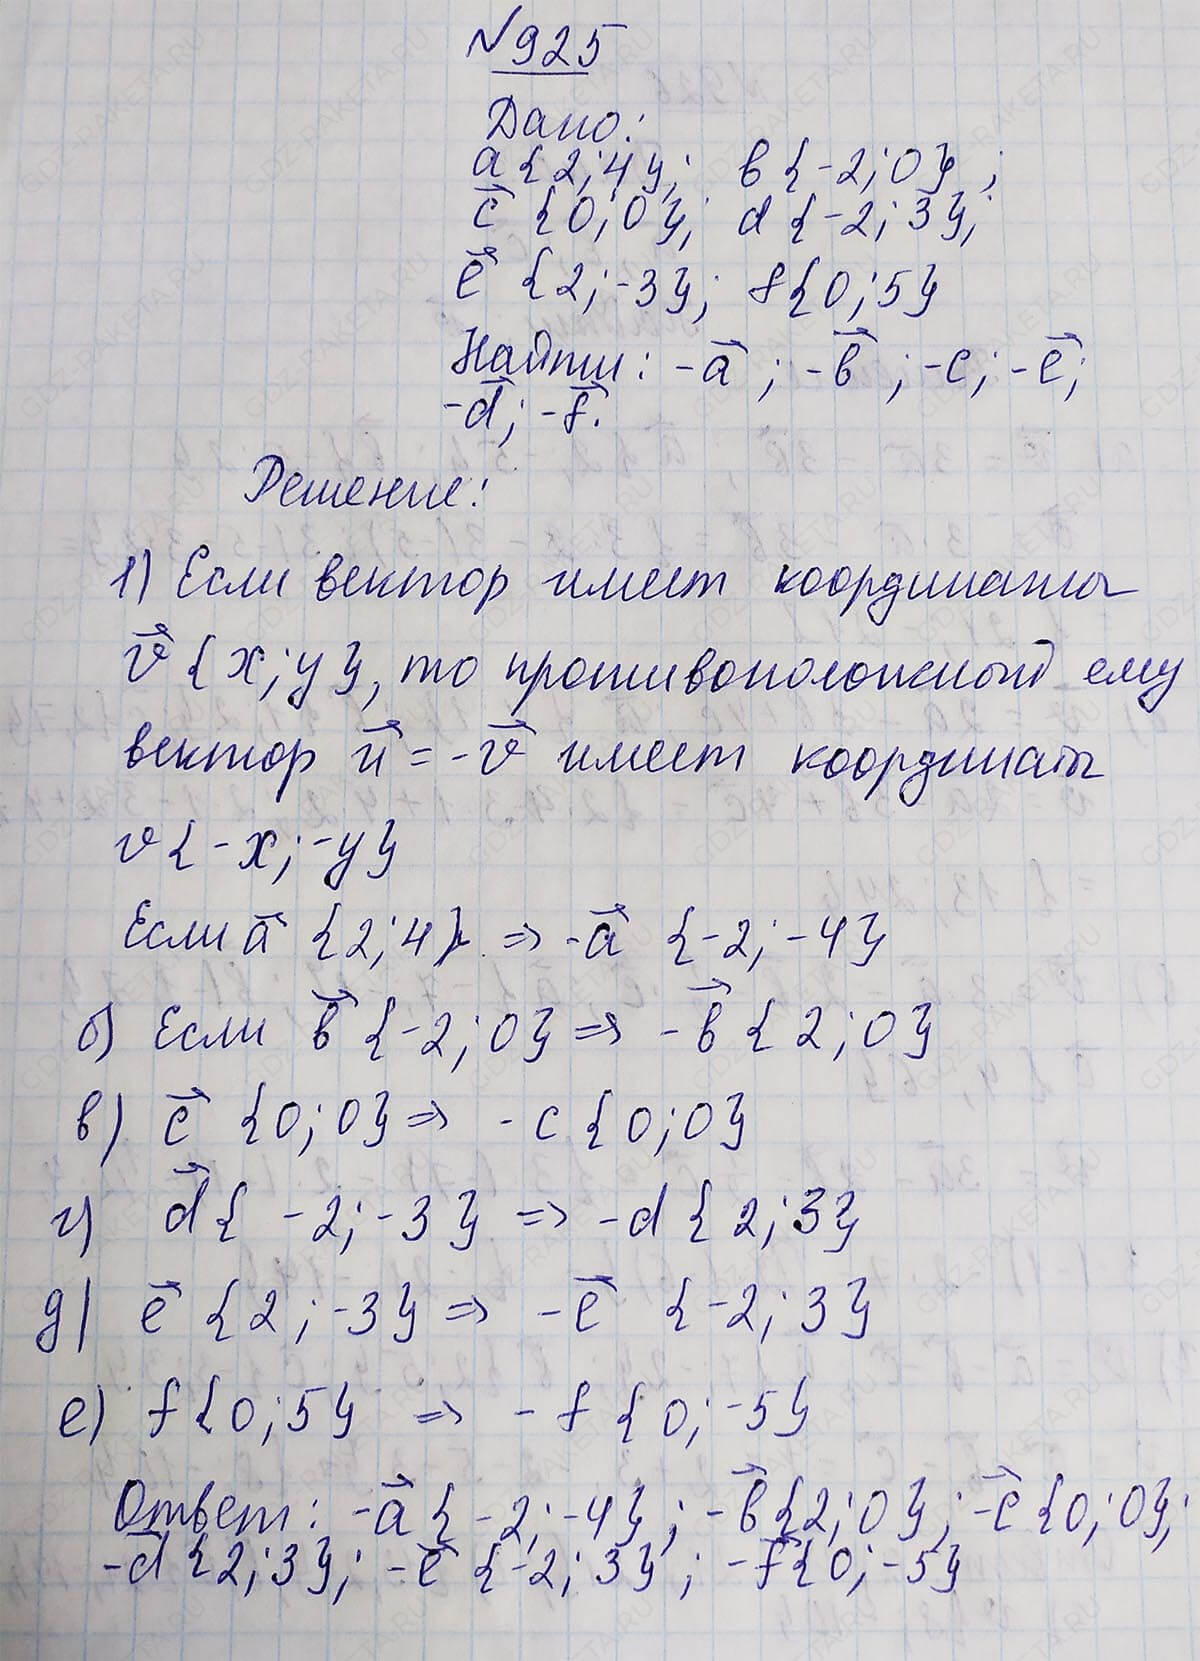 №925
Дано:
a{2;4}; b{-2;0};
c{0;0}; d{-2;3};
e{2;-3}; f{0;5}
Найти: -a; -b; -c; -e;
-d; -f.
Решение:
1) Если вектор имеет координаты
v{x;y}, то противоположный ему
вектор u = -v имеет координаты
v{-x;-y}
Если a{2;4} => -a{-2;-4}
б) Если b{-2;0} => -b{2;0}
в) c{0;0} => -c{0;0}
г) d{-2;-3} => -d{2;3}
д) e{2;-3} => -e{-2;3}
е) f{0;5} => -f{0;-5}
Ответ: -a{-2;-4}; -b{2;0}; -c{0;0};
-d{2;3}; -e{-2;3}; -f{0;-5}